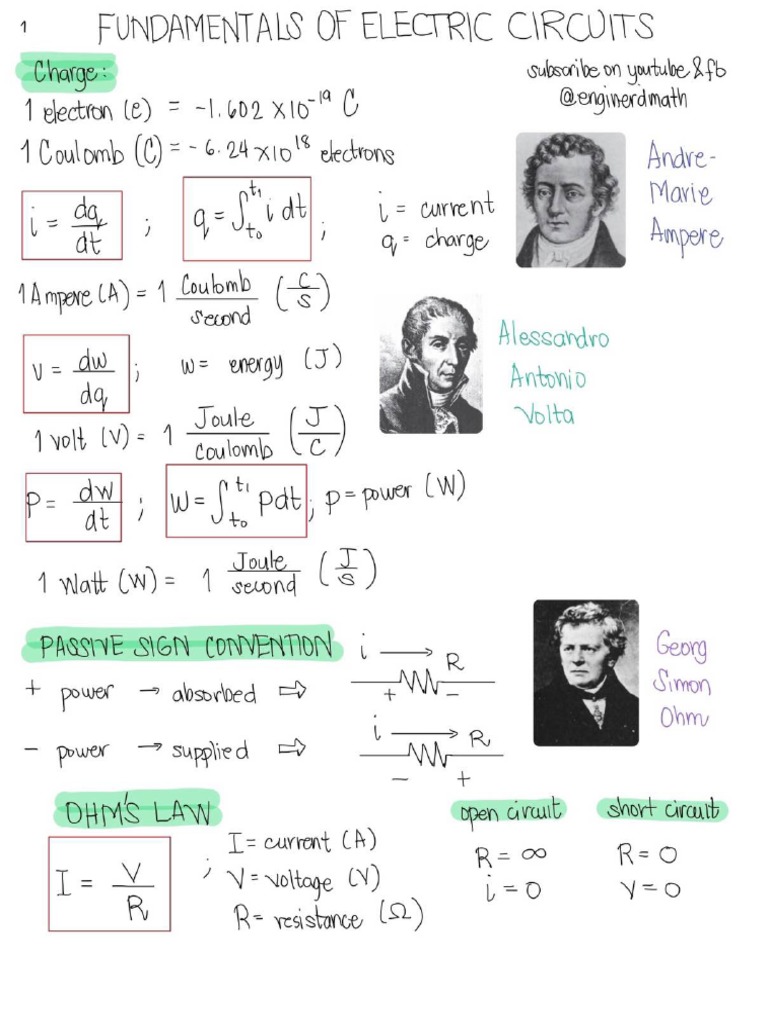 1
FUNDAMENTALS OF ELECTRIC CIRCUITS
subscribe on youtube & fb
@enginerdmath
Charge:
1 electron (e) = -1.602 x 10^-19 C
1 Coulomb (C) = - 6.24 x 10^18 electrons
i = dq/dt ; q = ∫_t0^t1 i dt ; i = current
q = charge
Andre-
Marie
Ampere
1 Ampere (A) = 1 Coulomb/second (C/S)
v = dw/dq ; w = energy (J)
Alessandro
Antonio
Volta
1 volt (V) = 1 Joule/coulomb (J/C)
P = dw/dt ; W = ∫_to^t1 pdt ; p = power (W)
1 Watt (W) = 1 Joule/second (J/S)
PASSIVE SIGN CONVENTION
+ power → absorbed ⇨
i → R
+ -
- power → supplied ⇨
i → R
- +
Georg
Simon
Ohm
OHM'S LAW
I = V/R ; I = current (A)
V = voltage (V)
R = resistance (Ω)
open circuit
R = ∞
i = 0
short circuit
R = 0
V = 0